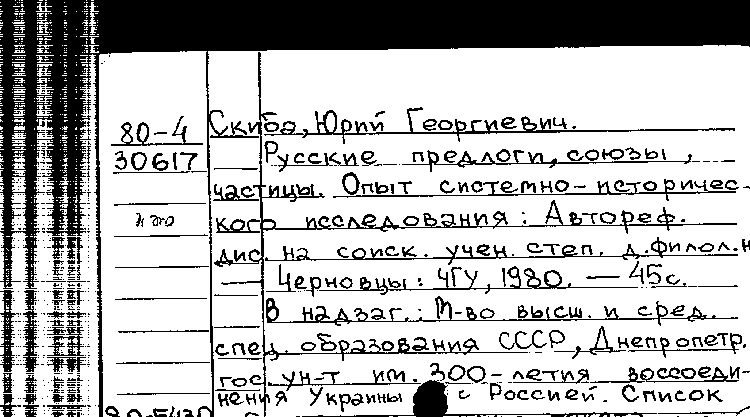 80-4
30617
Скиба, Юрий Георгиевич.
Русские предлоги, союзы,
частицы. Опыт системно-историчес-
кого исследования: Автореф.
дис. на соиск. учен. степ. д.филол.н
— Черновцы: ЧГУ, 1980. — 45с.
В надзаг.: М-во высш. и сред.
спец. образования СССР, Днепропетр.
гос. ун-т им. 300-летия воссоеди-
нения Украины с Россией. Список